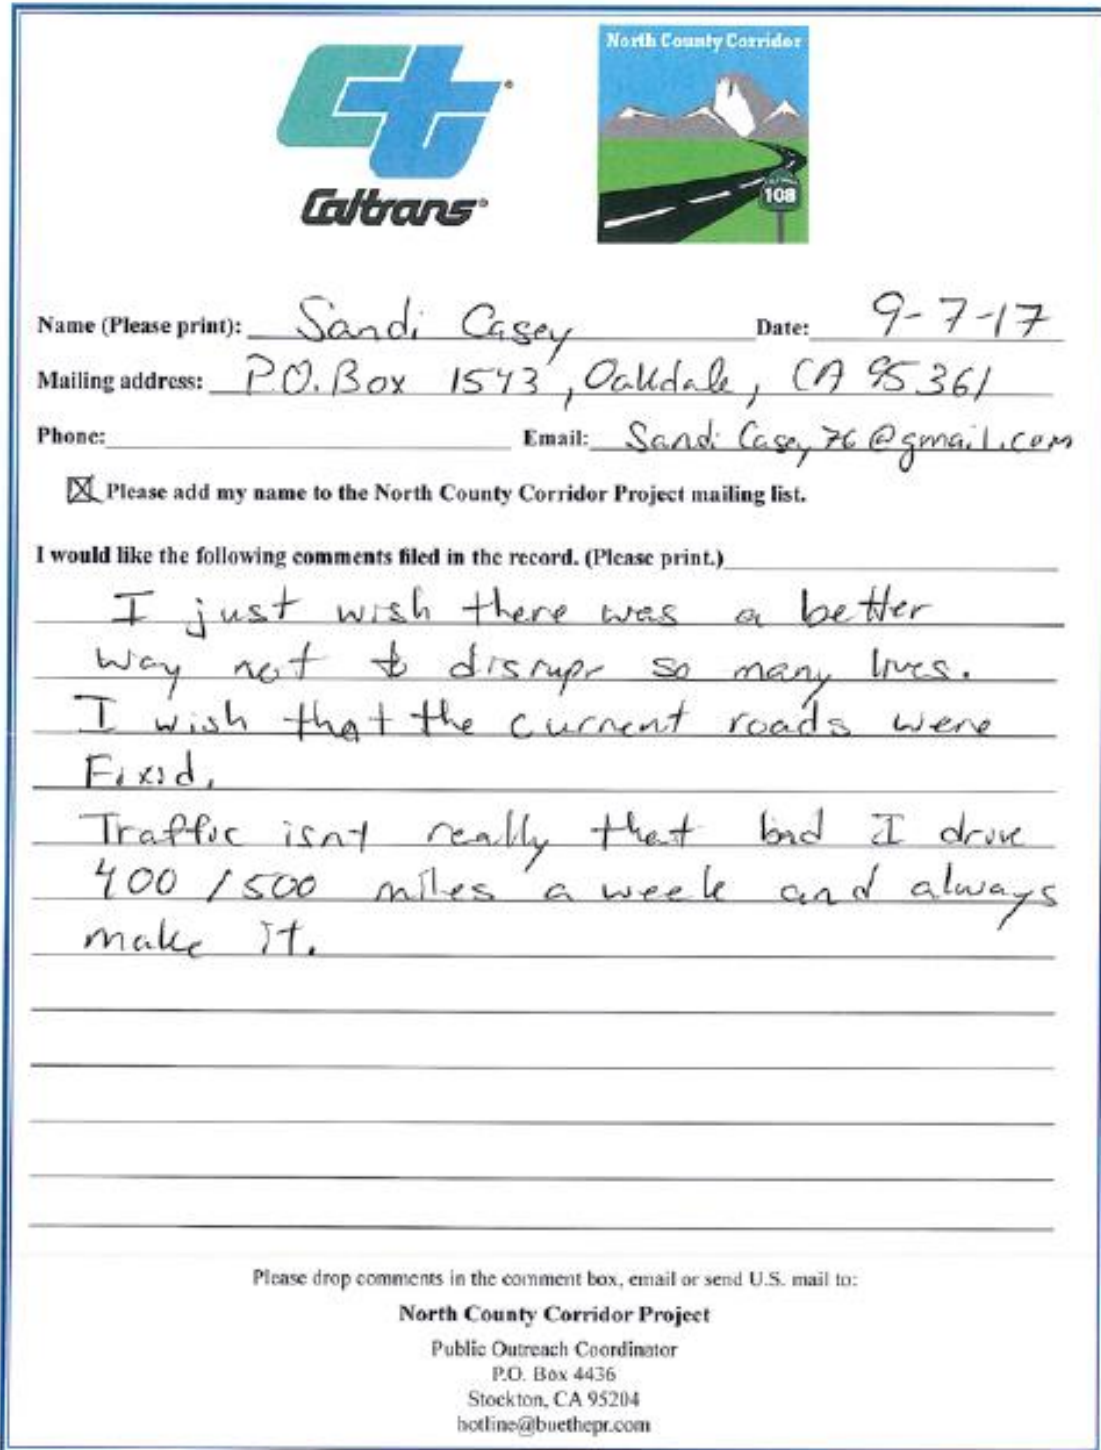 North County Corridor
Ct
Caltrans
108
Name (Please print): Sandi Casey Date: 9-7-17
Mailing address: P.O. Box 1543, Oakdale, CA 95361
Phone: Email: Sandi Casey 76 @gmail.com
Please add my name to the North County Corridor Project mailing list.
I would like the following comments filed in the record. (Please print.)
I just wish there was a better
way not to disrupt so many lives.
I wish that the current roads were
Fixed.
Traffic isnt really that bad I drive
400 / 500 miles a week and always
make it.
Please drop comments in the comment box, email or send U.S. mail to:
North County Corridor Project
Public Outreach Coordinator
P.O. Box 4436
Stockton, CA 95204
hotline@buethepr.com